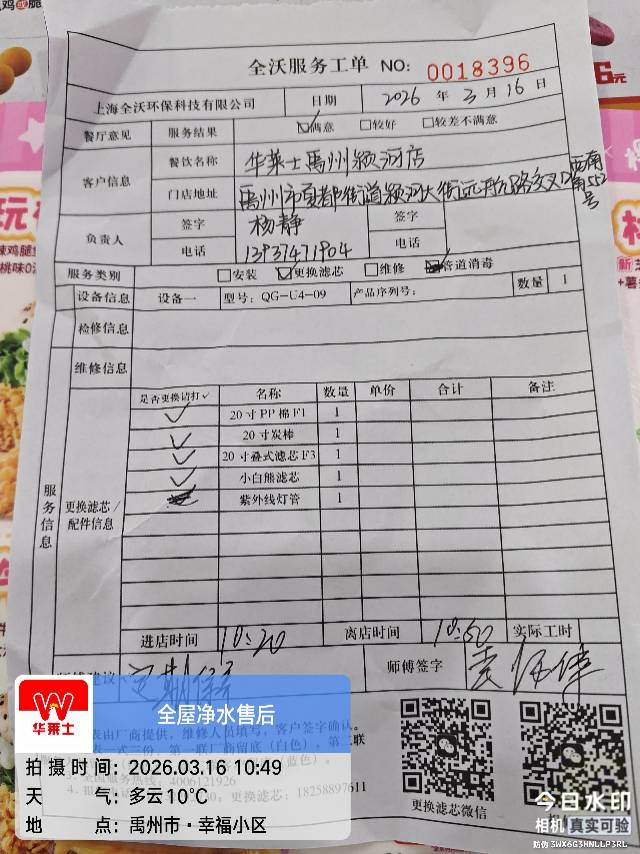 全沃服务工单 NO: 0018396
上海全沃环保科技有限公司 日期 2026 年 3 月 16 日
餐厅意见 服务结果 满意 较好 较差不满意
客户信息 餐饮名称 华莱士禹州颍河店
门店地址 禹州市夏都街道颍河大街远航路交叉口西南角552号
负责人 签字 杨静 签字
电话 13937471904 电话
服务类别 安装 更换滤芯 维修 管道消毒
设备信息 设备一 型号: QG-U4-09 产品序列号: 数量 1
检修信息
维修信息
服务信息
更换滤芯/配件信息
是否更换请打✓ 名称 数量 单价 合计 备注
✓ 20寸PP棉F1 1
✓ 20寸炭棒 1
✓ 20寸叠式滤芯F3 1
✓ 小白熊滤芯 1
紫外线灯管 1
进店时间 10:20 离店时间 10:50 实际工时
建议 定期保养 师傅签字
表由厂商提供，维修人员填写，客户签字确认。
表一式三份，第一联厂商留底（白色），第二联
（蓝色）。
服务热线: 4006121926
4. 更换滤芯: 18258897611
更换滤芯微信
华莱士
全屋净水售后
拍摄时间: 2026.03.16 10:49
天气: 多云10℃
地点: 禹州市·幸福小区
今日水印
相机 真实可验
防伪 3WX6G3HNLLP3RL